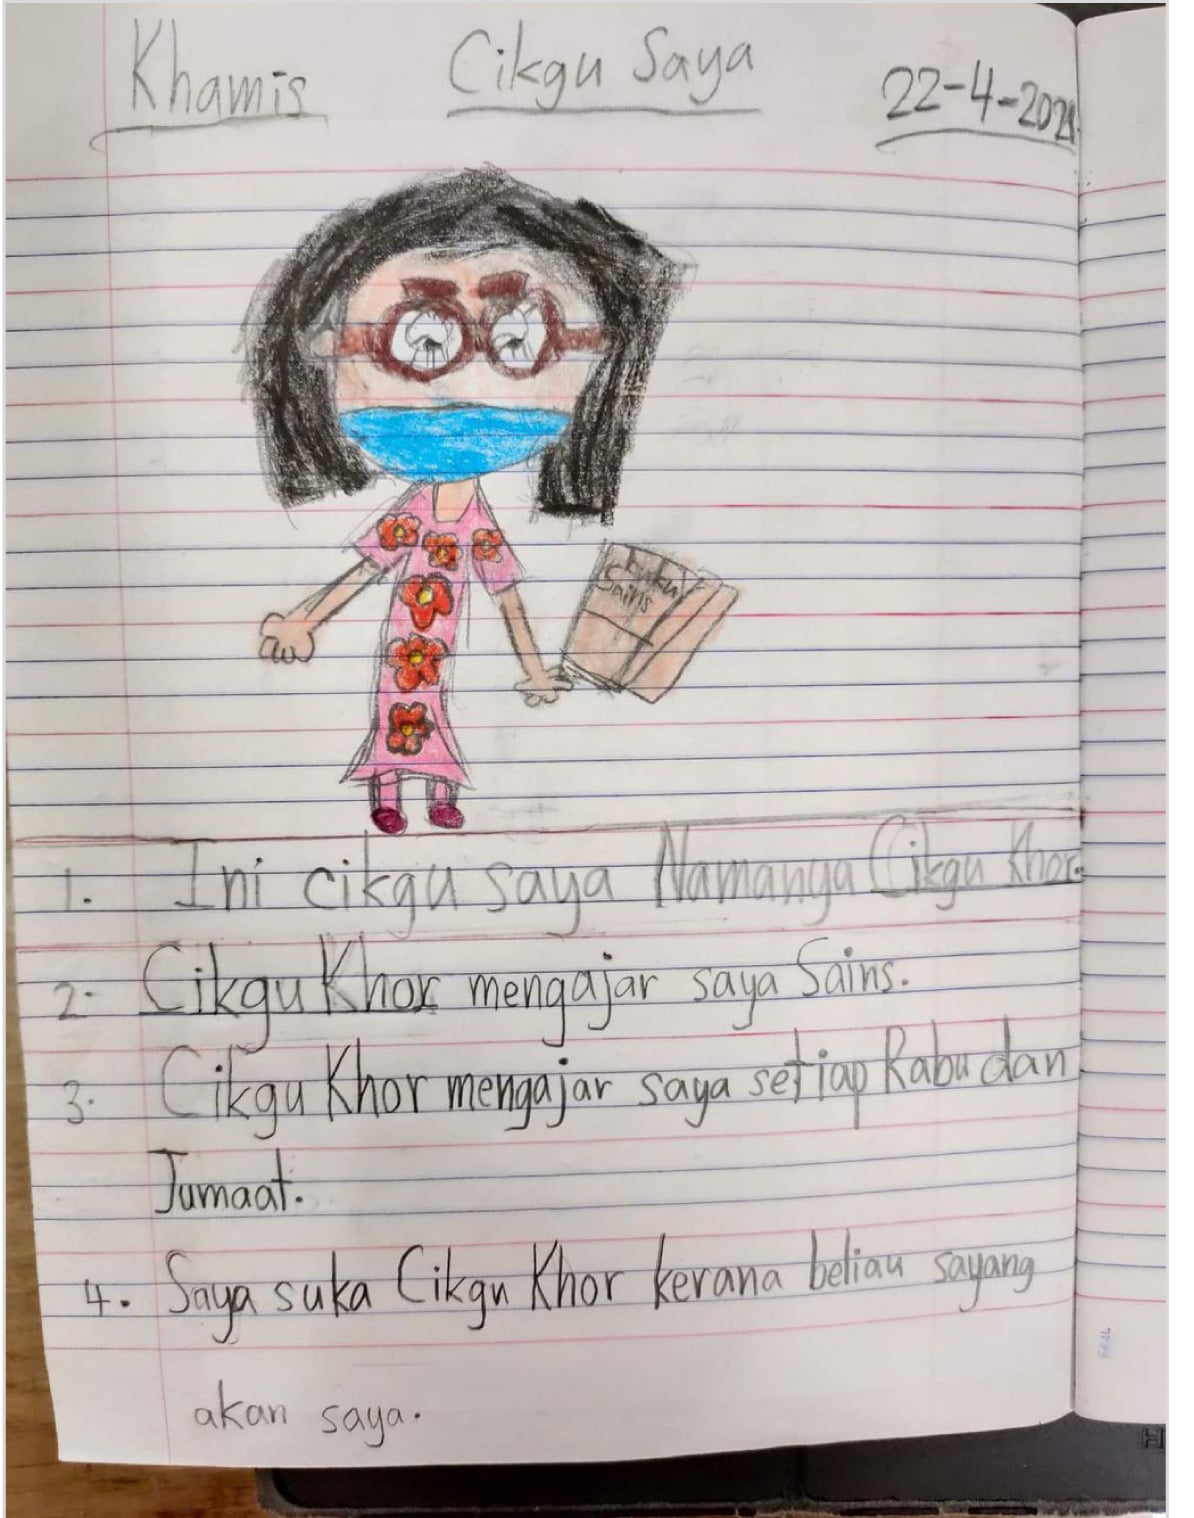 Khamis Cikgu Saya 22-4-2021
buku
Sains
1. Ini cikgu saya Namanya Cikgu Khor.
2. Cikgu Khor mengajar saya Sains.
3. Cikgu Khor mengajar saya setiap Rabu dan
Jumaat.
4. Saya suka Cikgu Khor kerana beliau sayang
akan saya.